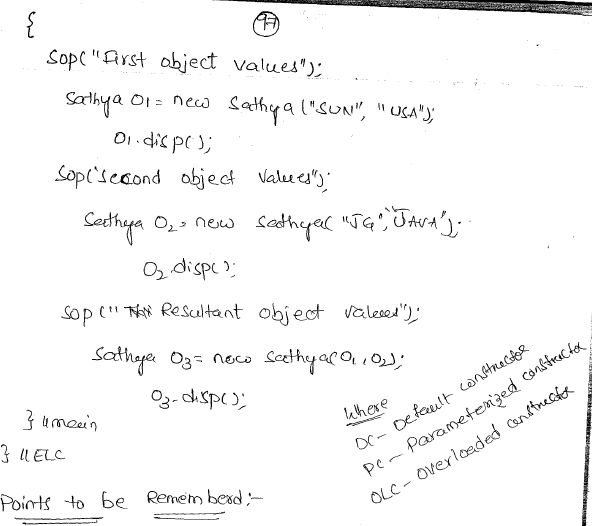 {
97
sop("First object values");
Sathya O1 = new Sathya("SUN", "USA");
O1.disp();
sop("second object values");
Sathya O2 = new Sathya("JG", "JAVA");
O2.disp();
sop("Resultant object values");
Sathya O3 = new Sathya(O1, O2);
O3.disp();
} //main
} //ELC
Where
DC - Default constructor
PC - Parameterized constructor
OLC - overloaded constructor
Points to be Rememberd:-